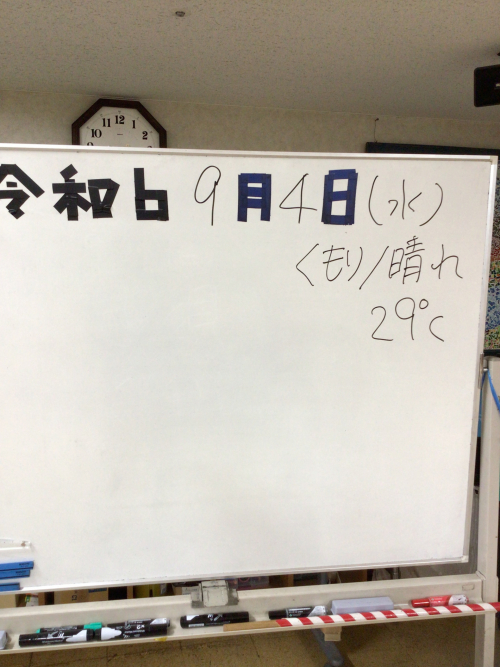 10 11 12 1 2
令和6 9月4日(水)
くもり/晴れ
29℃